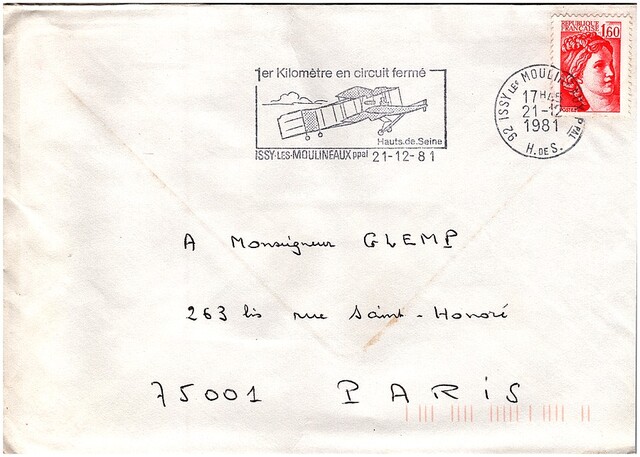 1er Kilomètre en circuit fermé
Hauts.de.Seine
ISSY-LES-MOULINEAUX ppal 21-12-81
RÉPUBLIQUE
FRANÇAISE 1,60
92 ISSY LES MOULINEAUX PPAL
17H45
21-12
1981
H. DE S.
A Monseigneur GLEMP
263 bis rue Saint-Honoré
75001 PARIS